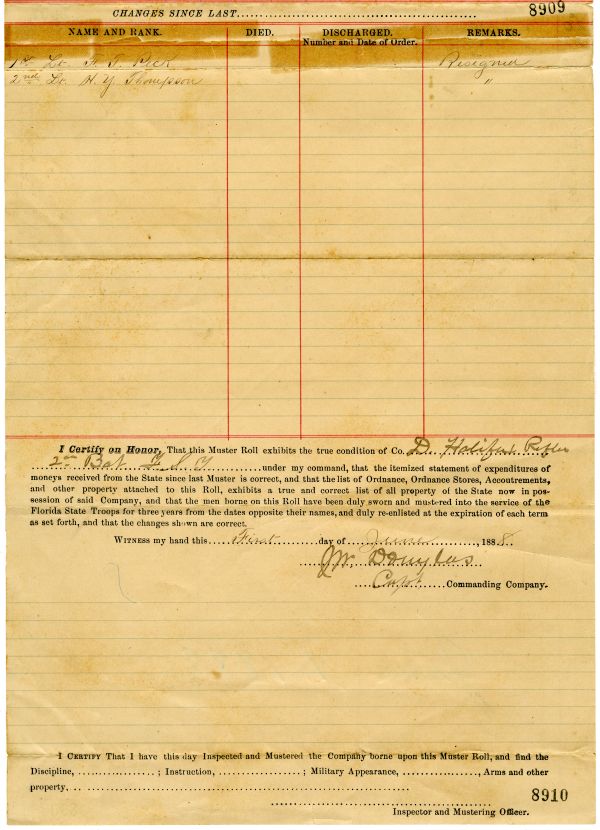 CHANGES SINCE LAST
8909
NAME AND RANK. DIED. DISCHARGED. Number and Date of Order. REMARKS.
1st Lt. F. J. Peck Resigned
2nd Lt. H. Y. Thompson "
I Certify on Honor, That this Muster Roll exhibits the true condition of Co. D. Halifax Rifles
2nd Bat under my command, that the itemized statement of expenditures of
moneys received from the State since last Muster is correct, and that the list of Ordnance, Ordnance Stores, Accoutrements,
and other property attached to this Roll, exhibits a true and correct list of all property of the State now in pos-
session of said Company, and that the men borne on this Roll have been duly sworn and mustered into the service of the
Florida State Troops for three years from the dates opposite their names, and duly re-enlisted at the expiration of each term
as set forth, and that the changes shown are correct.
WITNESS my hand this First day of June, 1888.
J.W. Douglas
Capt. Commanding Company.
I CERTIFY That I have this day Inspected and Mustered the Company borne upon this Muster Roll, and find the
Discipline, ; Instruction, ; Military Appearance, , Arms and other
property,
8910
Inspector and Mustering Officer.